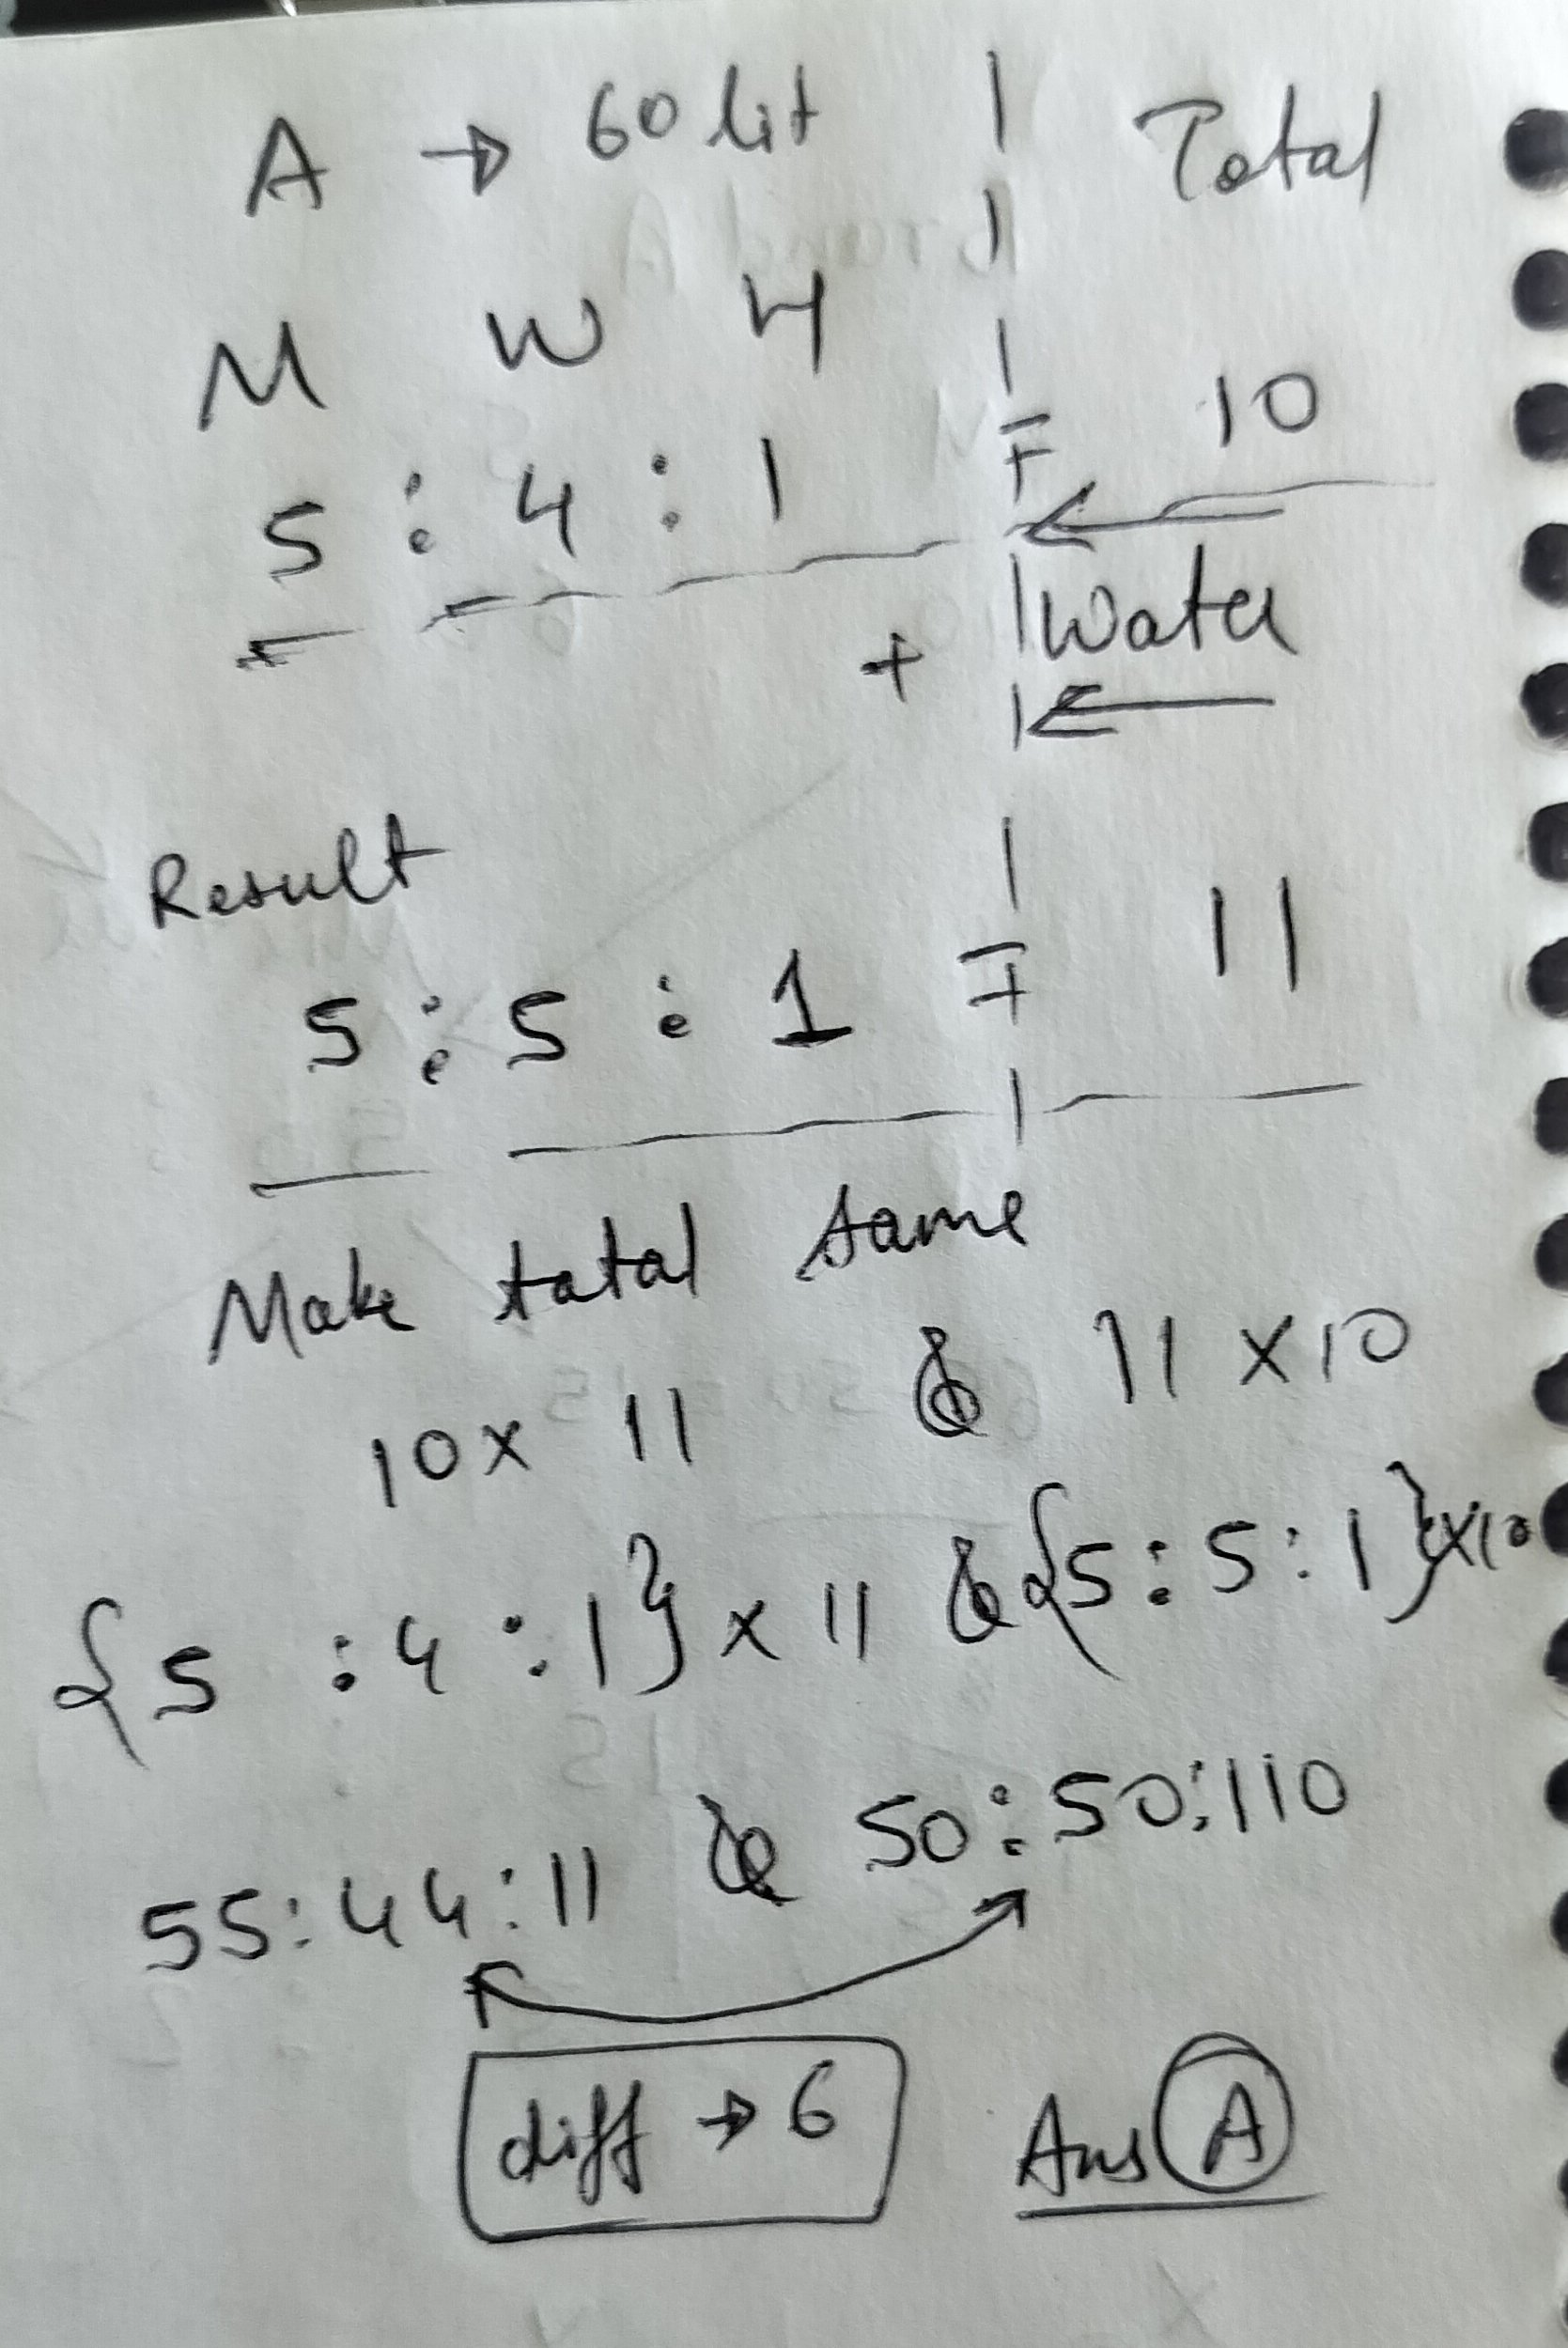 A → 60 lit | Total
M W H
5 : 4 : 1 = 10
+ Water
Result
5 : 5 : 1 = 11
Make total same
10 x 11 & 11 x 10
{5 : 4 : 1} x 11 & {5 : 5 : 1} x 10
55 : 44 : 11 & 50 : 50 : 110
diff → 6 Ans A